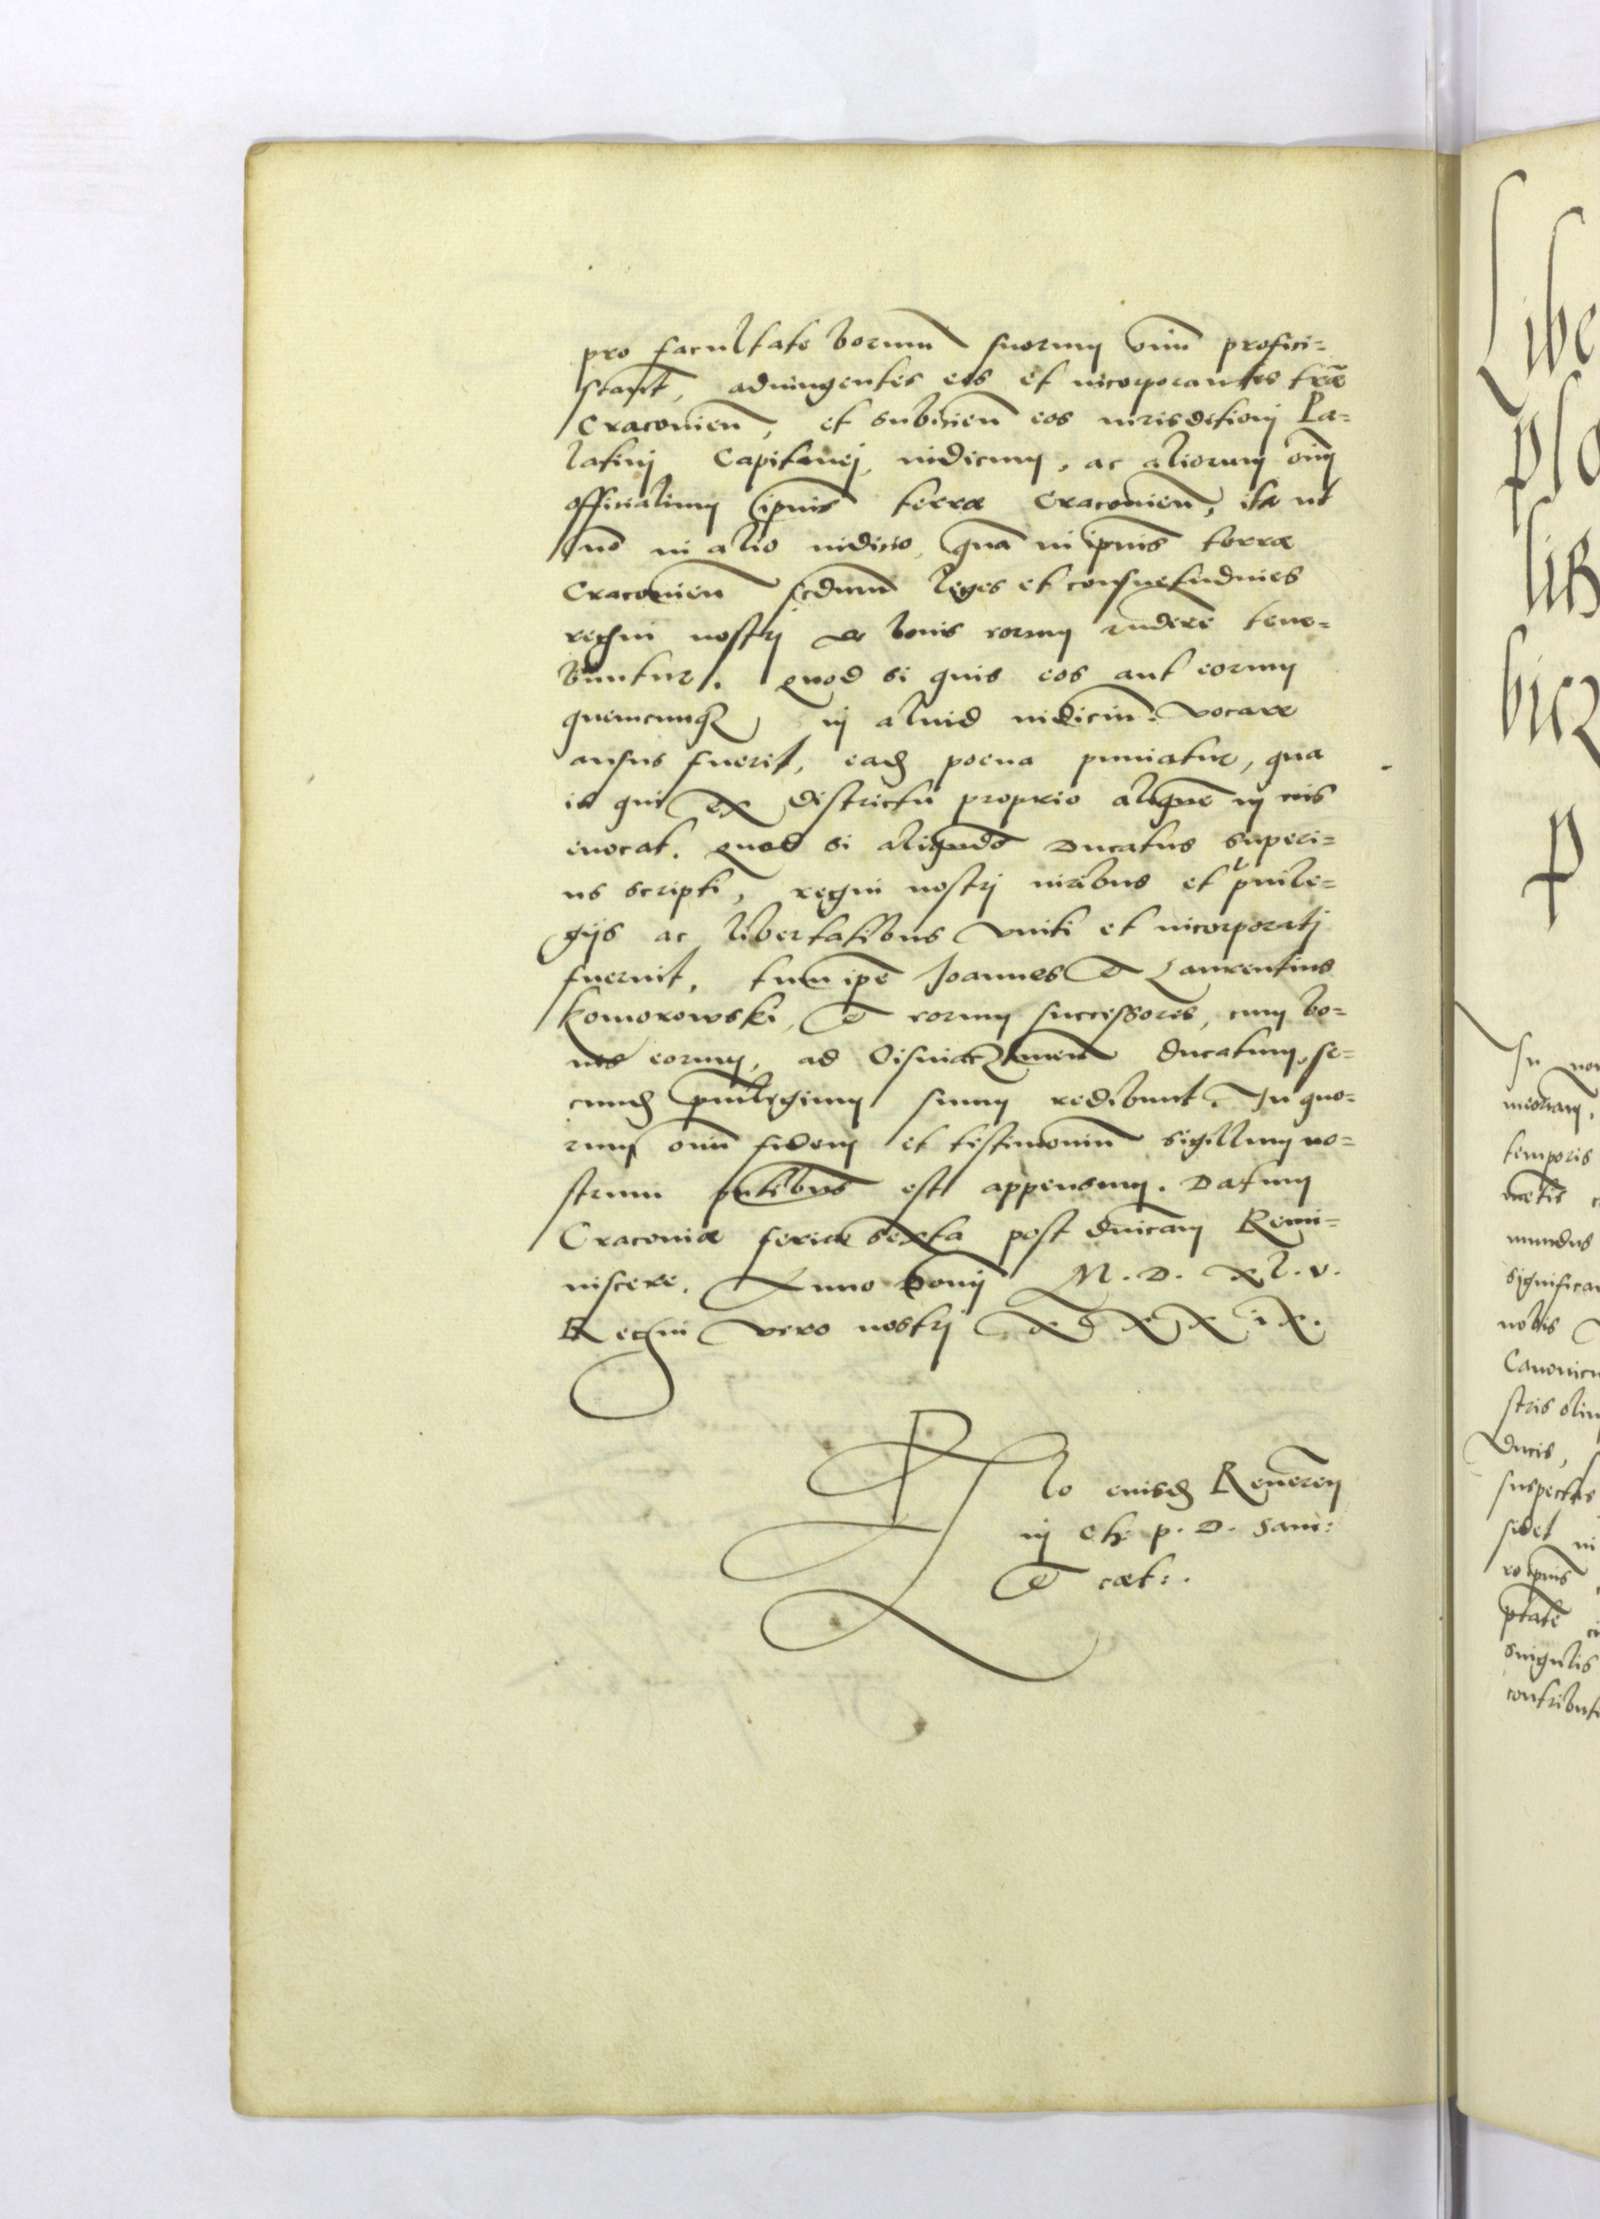 pro facultate bonorum suorum omnium profici=
scant, adiungentes eos et incorporantes terrae
Cracovien, et subiicien eos iurisdictioni Pa=
latini Capitanei, iudicum, ac aliorum omnium
officialium ipsius terrae Cracovien, ita ut
non in alio iudicio, quam in ipsius terrae
Cracovien secdum leges et consuetudines
regni nostri de bonis eorum rndere tene=
buntur. Quod si quis eos aut eorum
quemcunq in aliud iudicium vocare
ausus fuerit, eadem poena puniatur, qua
is qui ex districtu proprio aliquem in ius
evocat. Quod si aliquando Ducatus superi=
us scripti, regni nostri iuribus et privile=
giis ac libertatibus uniti et incorporati
fuerint, tum ipse Joannes et Laurentius
Komorowski, et eorum successores, cum bo=
nis eorum, ad Osviaczimen ducatum, se=
cundum privilegium suum redibunt. In quo=
rum omnium fidem et testimonium sigillum no=
strum pntibus est appensum. Datum
Cracoviae feria sexta post dnicam Remi=
niscere. Anno domini M. D. XL. V.
Regni vero nostri XXXIX.
Rlo eiusdem Reveren
in Ch: p. D. Sam:
et caet:.
Libe
plo
bicz
P
In no
temporis
mundus
significa
nobis
Canonicu
stris olim
Ducis,
suspectus
sidet in
ro ipsius
singulis
contributi